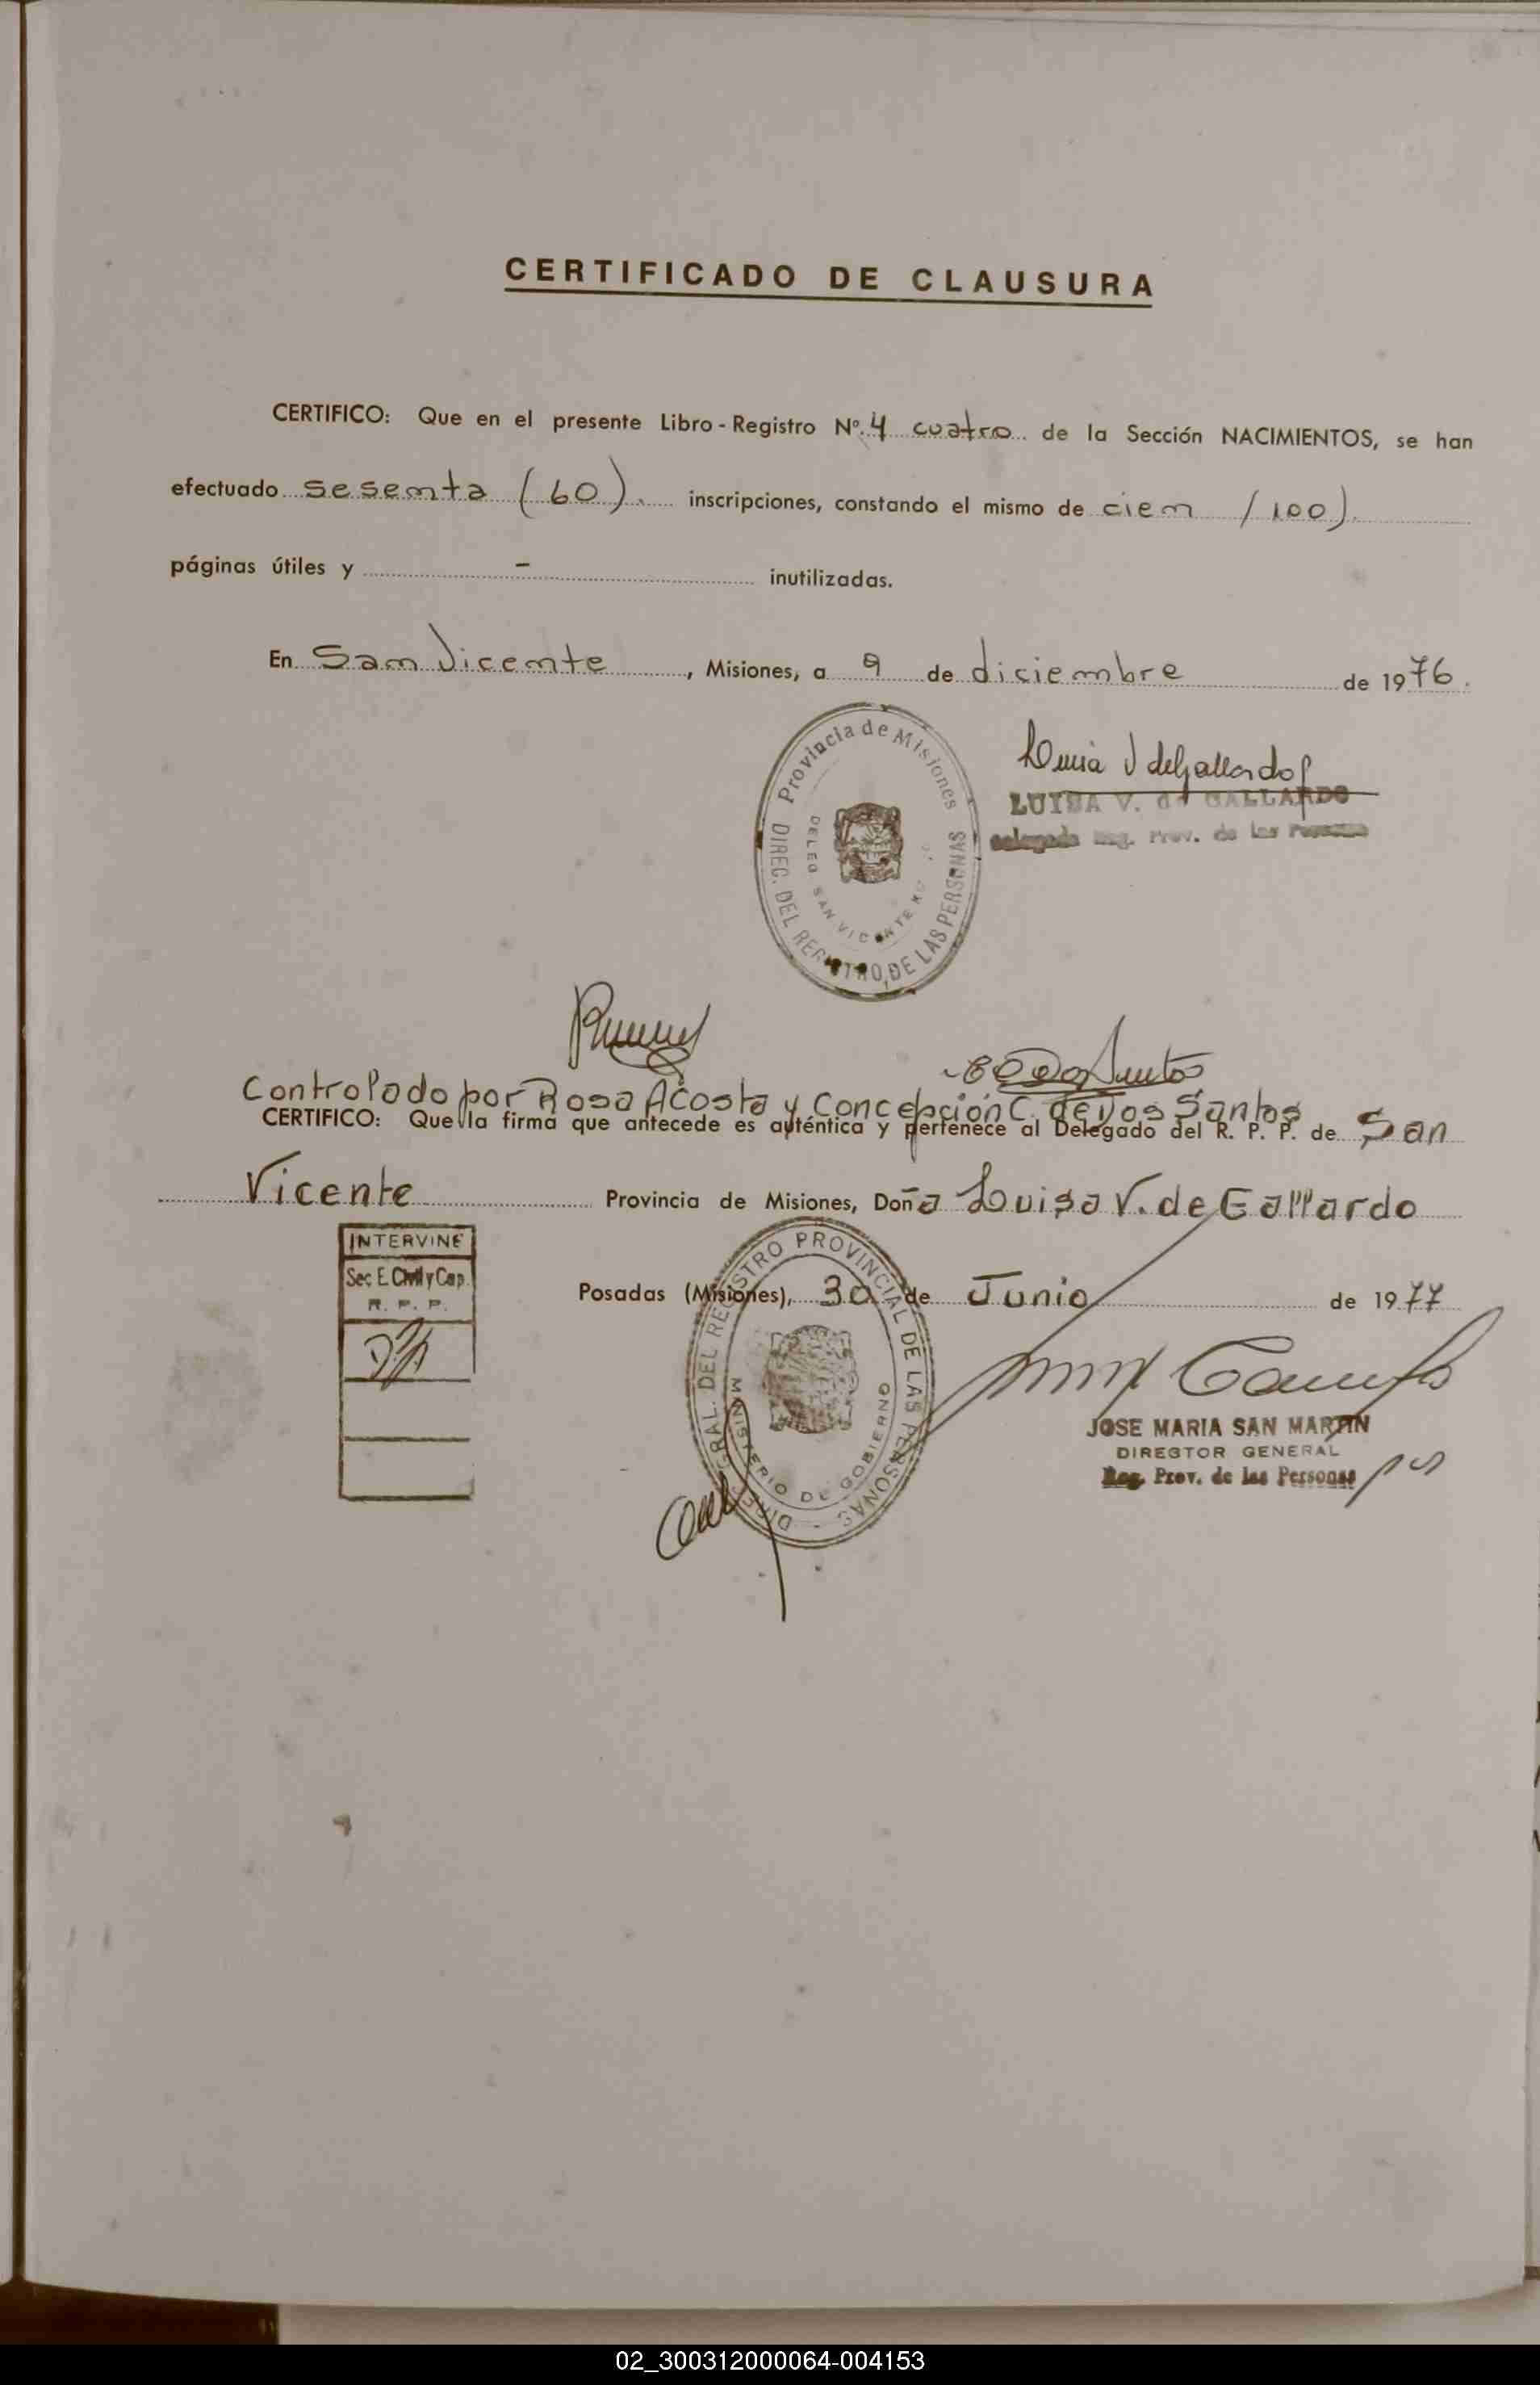 CERTIFICADO DE CLAUSURA
CERTIFICO: Que en el presente Libro - Registro Nº. 4 cuatro de la Sección NACIMIENTOS, se han
efectuado sesenta (60). inscripciones, constando el mismo de cien /100).
páginas útiles y - inutilizadas.
En San Vicente, Misiones, a 9 de diciembre de 1976.
Provincia de Misiones
DIREC. DEL REGISTRO DE LAS PERSONAS
DELEG SAN VICENTE
LUISA V. de GALLARDO
Delegada Reg. Prov. de las Personas
Controlado por Rosa Acosta y Concepción C. de Dos Santos
CERTIFICO: Que la firma que antecede es auténtica y pertenece al Delegado del R. P. P. de San
Vicente Provincia de Misiones, Doña Luisa V. de Gallardo
INTERVINE
Sec E. Civil y Cap.
R. P. P.
Posadas (Misiones), 30 de Junio de 1977
DIREC. GRAL. DEL REGISTRO PROVINCIAL DE LAS PERSONAS
MINISTERIO DE GOBIERNO
JOSE MARIA SAN MARTIN
DIRECTOR GENERAL
Reg. Prov. de las Personas
02_300312000064-004153